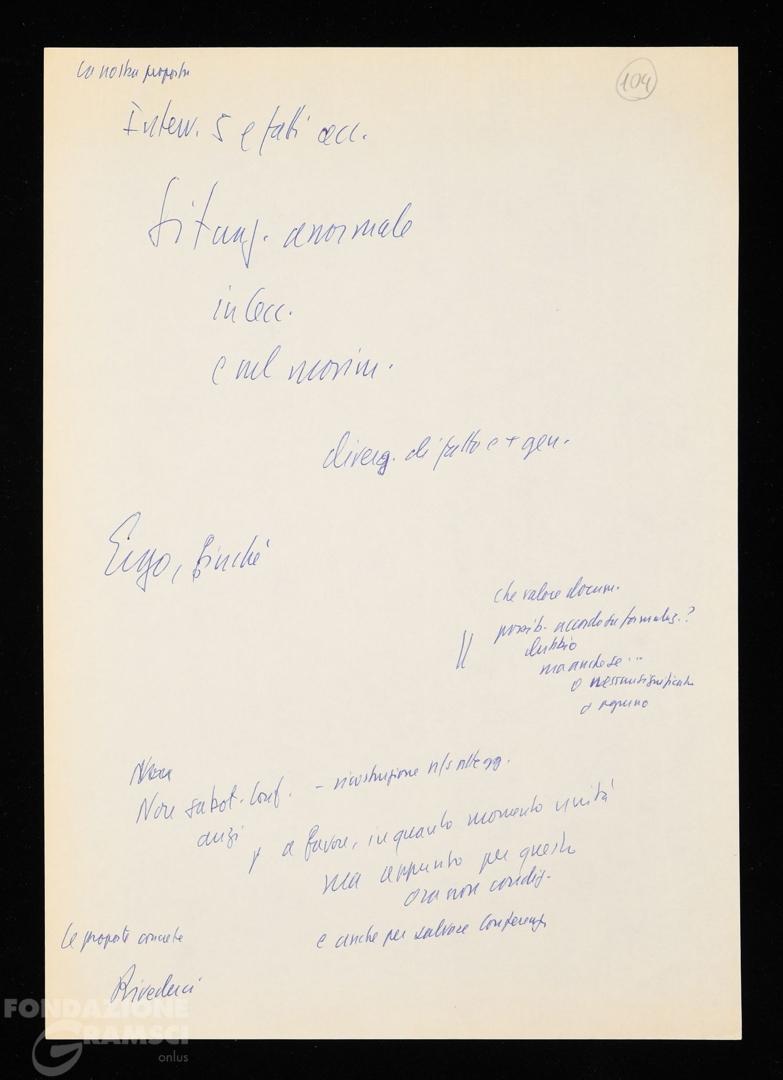 La nostra proposta
104
Interv. 5 e fatti cecc.
Situaz. anormale
in Cec.
e nel movim.
diverg. di fatto e + gen.
Ergo, finché
che valore docum.
possib. accordo su formulaz.?
dubbio
ma anche se...
o nessun significato
o
Non sabot. Conf. - ricostruzione n/s attegg.
anzi
a favore, in quanto momento unità
ma appunto per questo
ora non condiz.
e anche per salvare Conferenza
Le proposte concrete
Rivederci
FONDAZIONE
GRAMSCI
onlus